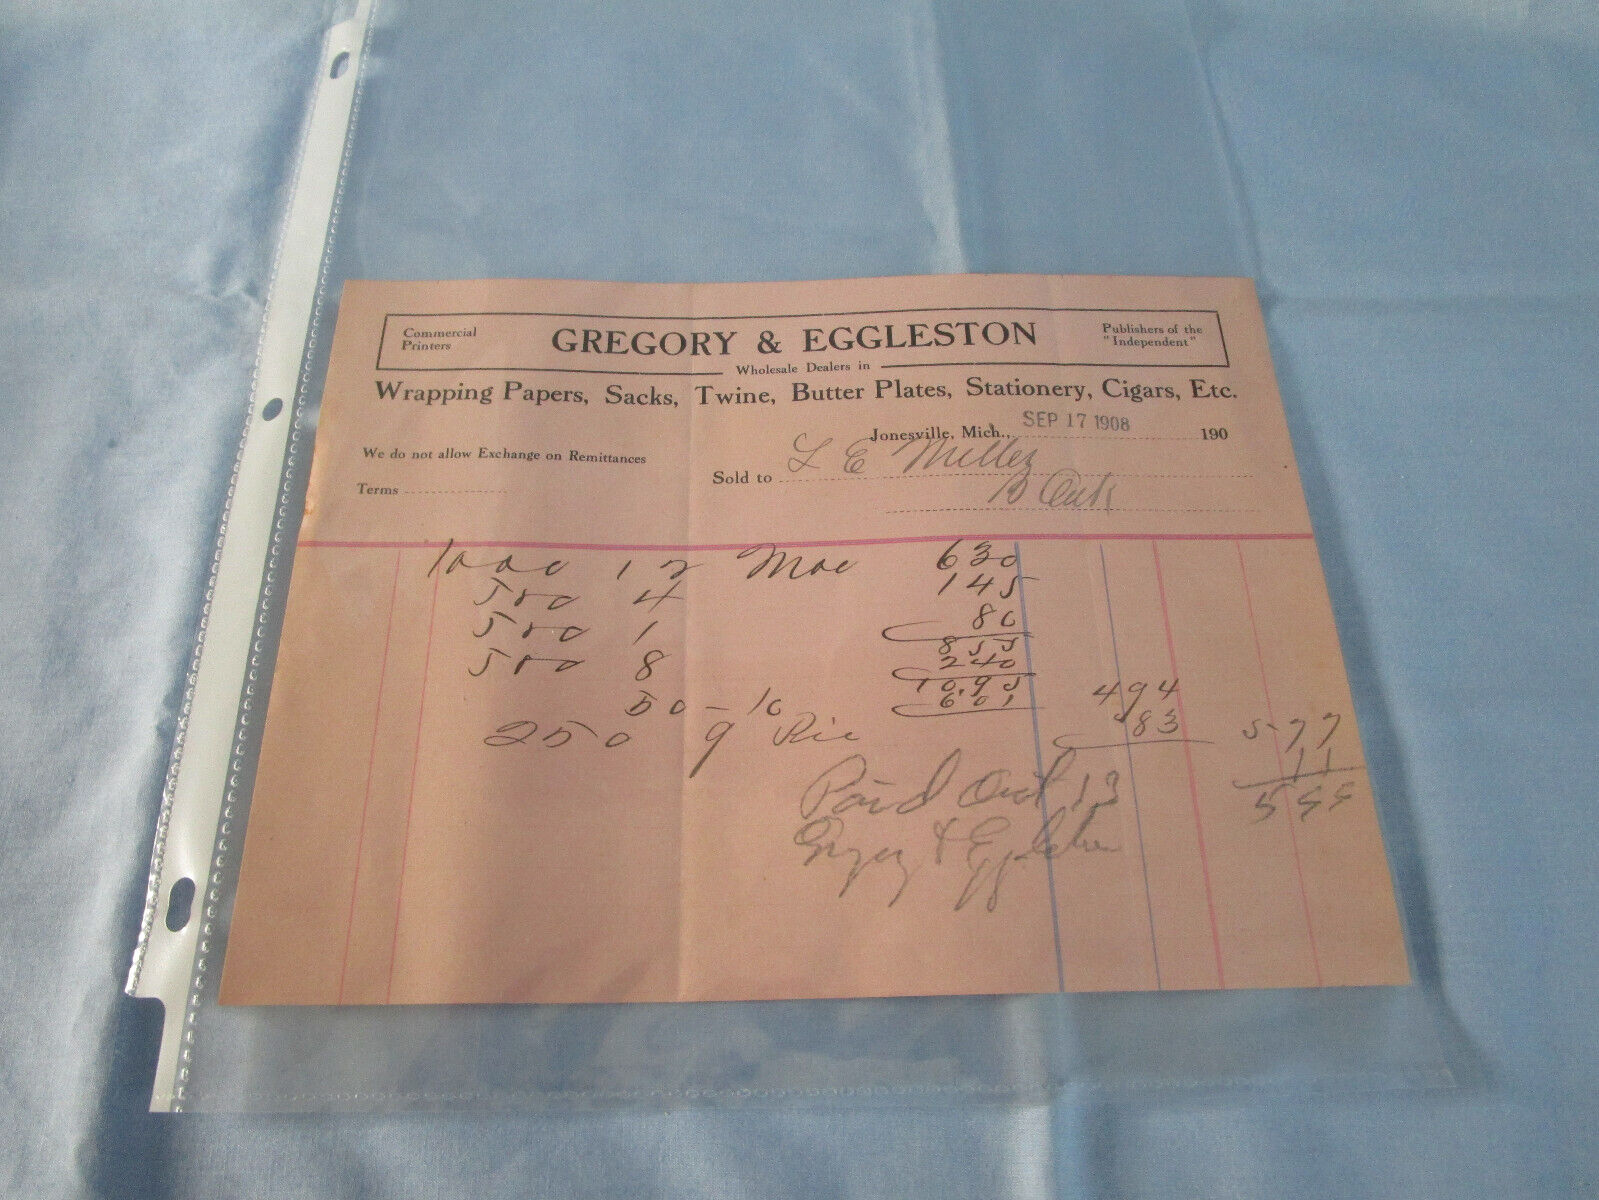 Commercial Printers
GREGORY & EGGLESTON
Publishers of the "Independent"
Wholesale Dealers in
Wrapping Papers, Sacks, Twine, Butter Plates, Stationery, Cigars, Etc.
Jonesville, Mich., SEP 17 1908 190
We do not allow Exchange on Remittances
Sold to L E Miller
Terms
1000 12 630
500 4 145
500 1 80
855
500 8 240
10.95
50-10 601 494
250 9 83 577
11
Paid Oct 13
Gregory & Eggleston